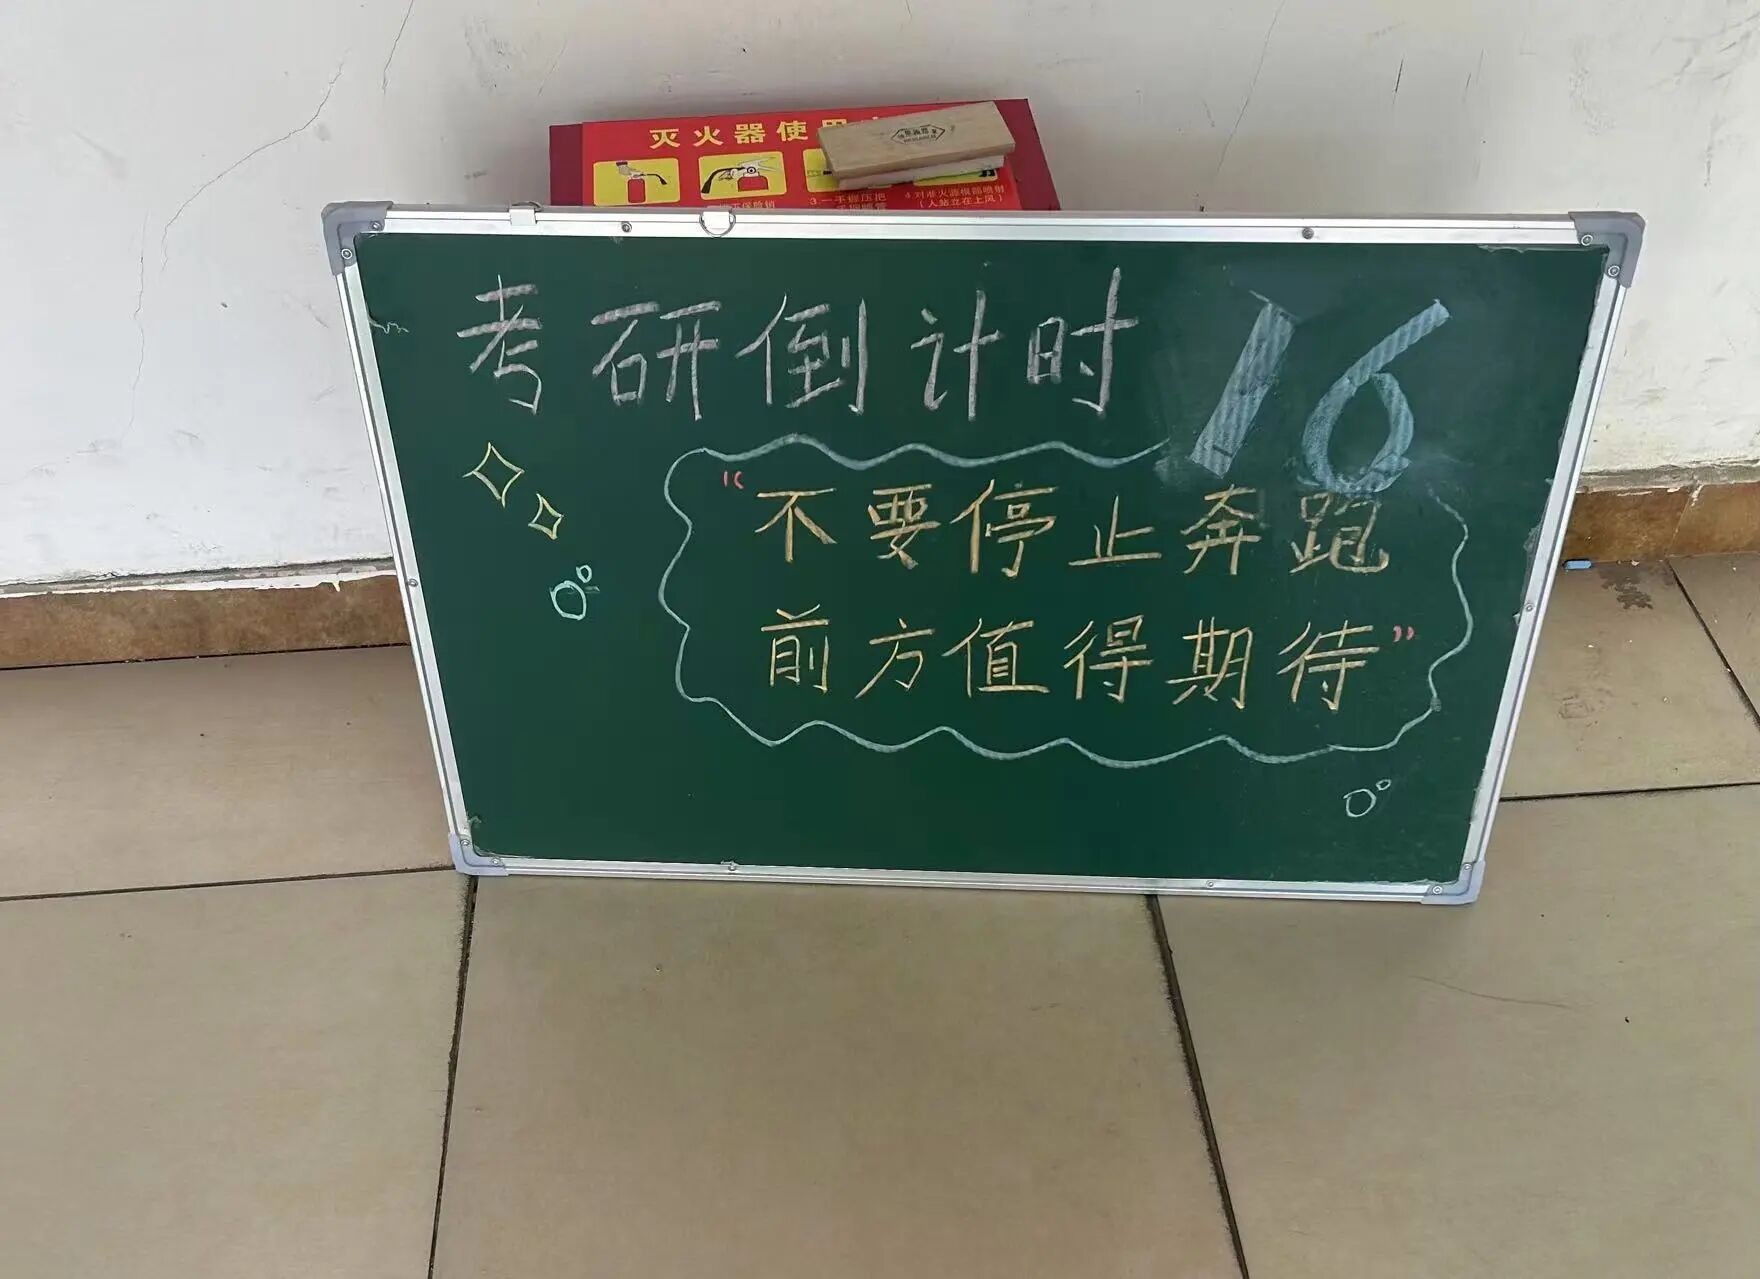 灭火器使用
3.一手握压把
4.对准火源根部喷射
（人站立在上风）
考研倒计时 16
“不要停止奔跑
前方值得期待”